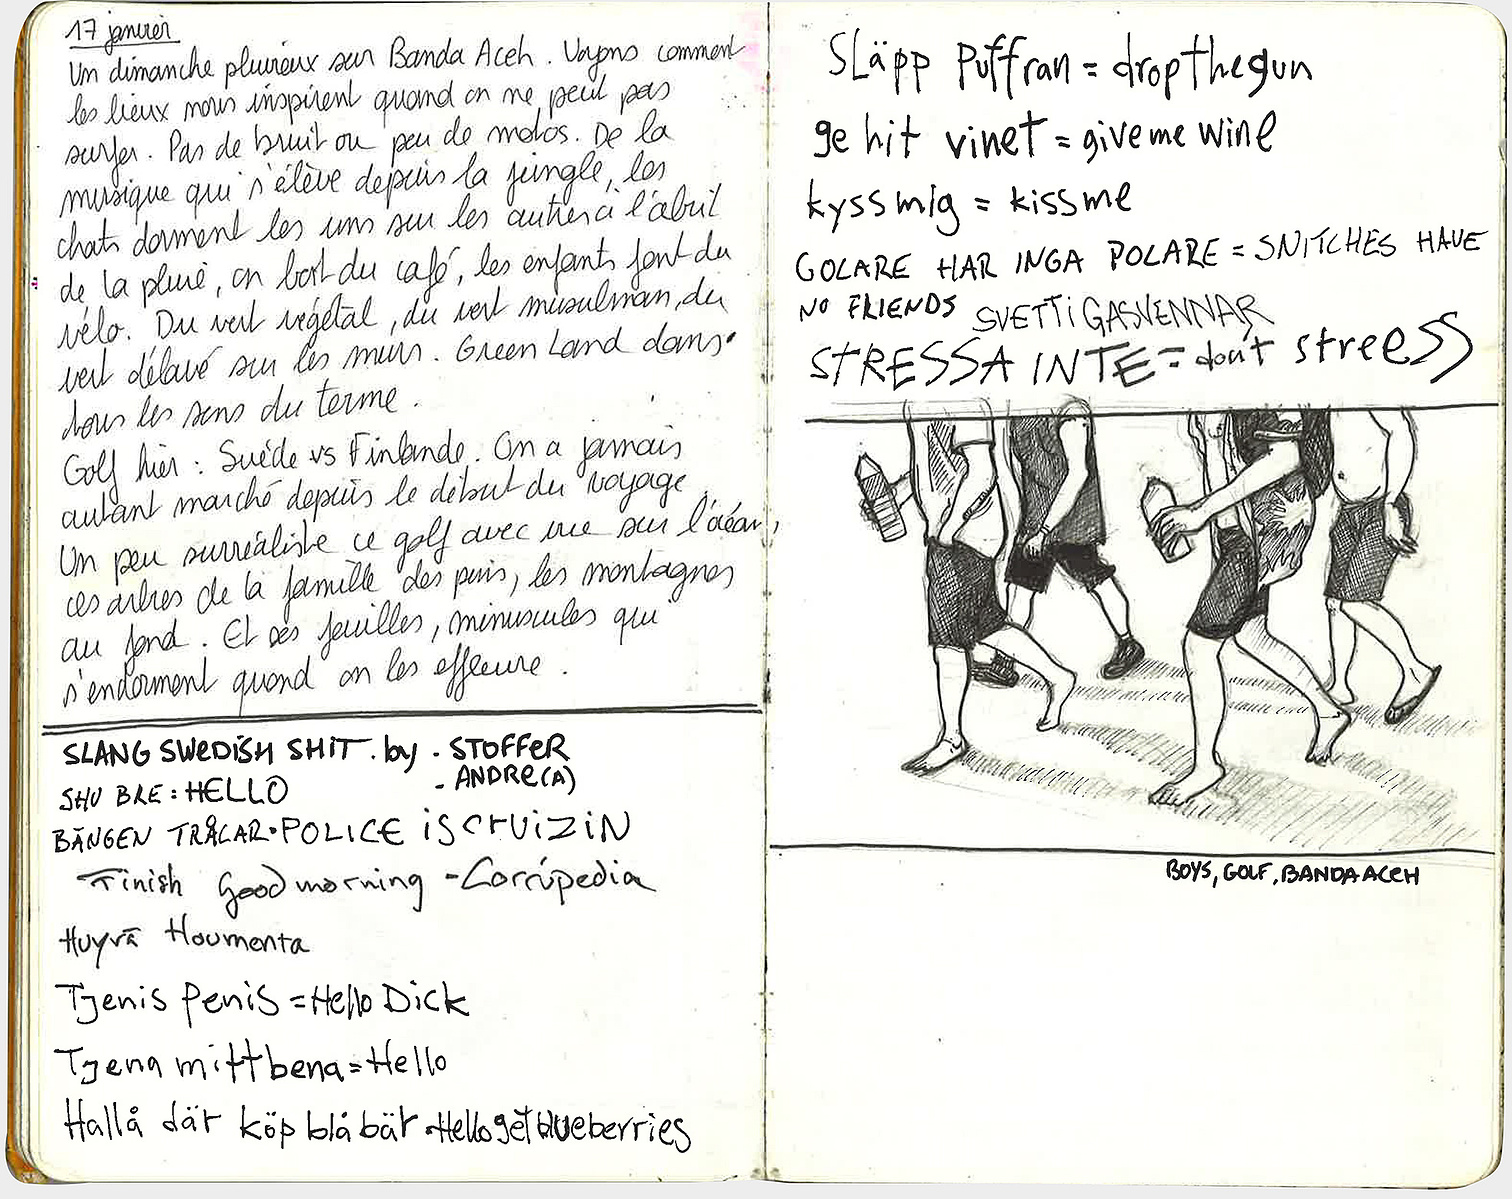 17 janvier
Un dimanche pluvieux sur Banda Aceh. Voyons comment
les lieux nous inspirent quand on ne peut pas
surfer. Pas de bruit ou peu de motos. De la
musique qui s'élève depuis la jungle, les
chats dorment les uns sur les autres à l'abri
de la pluie, on boit du café, les enfants font du
vélo. Du vert végétal, du vert musulman, du
vert délavé sur les murs. Green Land dans
tous les sens du terme.
Golf hier : Suède vs Finlande. On a jamais
autant marché depuis le début du voyage
Un peu surréaliste ce golf avec vue sur l'océan,
ces arbres de la famille des pins, les montagnes
au fond. Et ces feuilles, minuscules qui
s'endorment quand on les effleure.
SLANG SWEDISH SHIT. by . STOFFER
- ANDRE(A)
SHU BRE : HELLO
BÄNGEN TRÅLAR • POLICE iS CrUiZiN
Finish Good morning - Corrúpedia
Huyvä Houmenta
Tjenis Penis = Hello Dick
Tjena mittbena = Hello
Hallå där köp blåbär Hello get blueberries
Släpp Puffran = drop the gun
ge hit vinet = give me wine
kyss mig = kiss me
GOLARE HAR INGA POLARE = SNITCHES HAVE
NO FRIENDS SVETTiGASVENNAR
STRESSA INTE = don't streeSS
BOYS, GOLF, BANDA ACEH